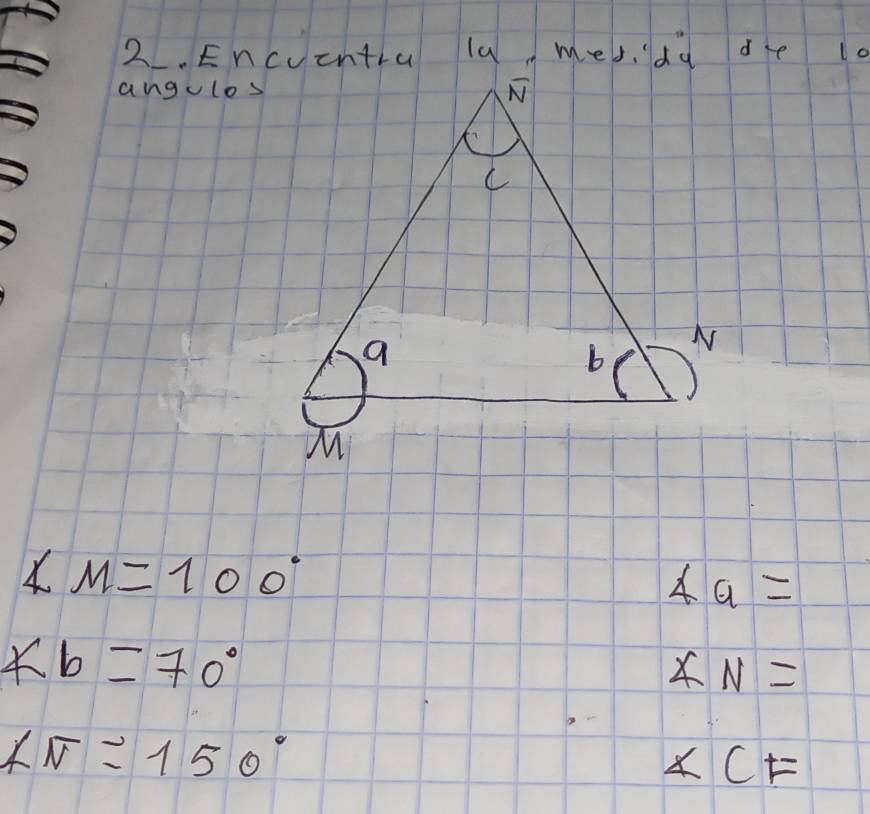 2_. Encuentra la medida de lo
angulos
N̄
C
a
b
N
M
∡ M = 100°
∡ a =
∡ b = 70°
∡ N =
∡ N̄ = 150°
∡ C =